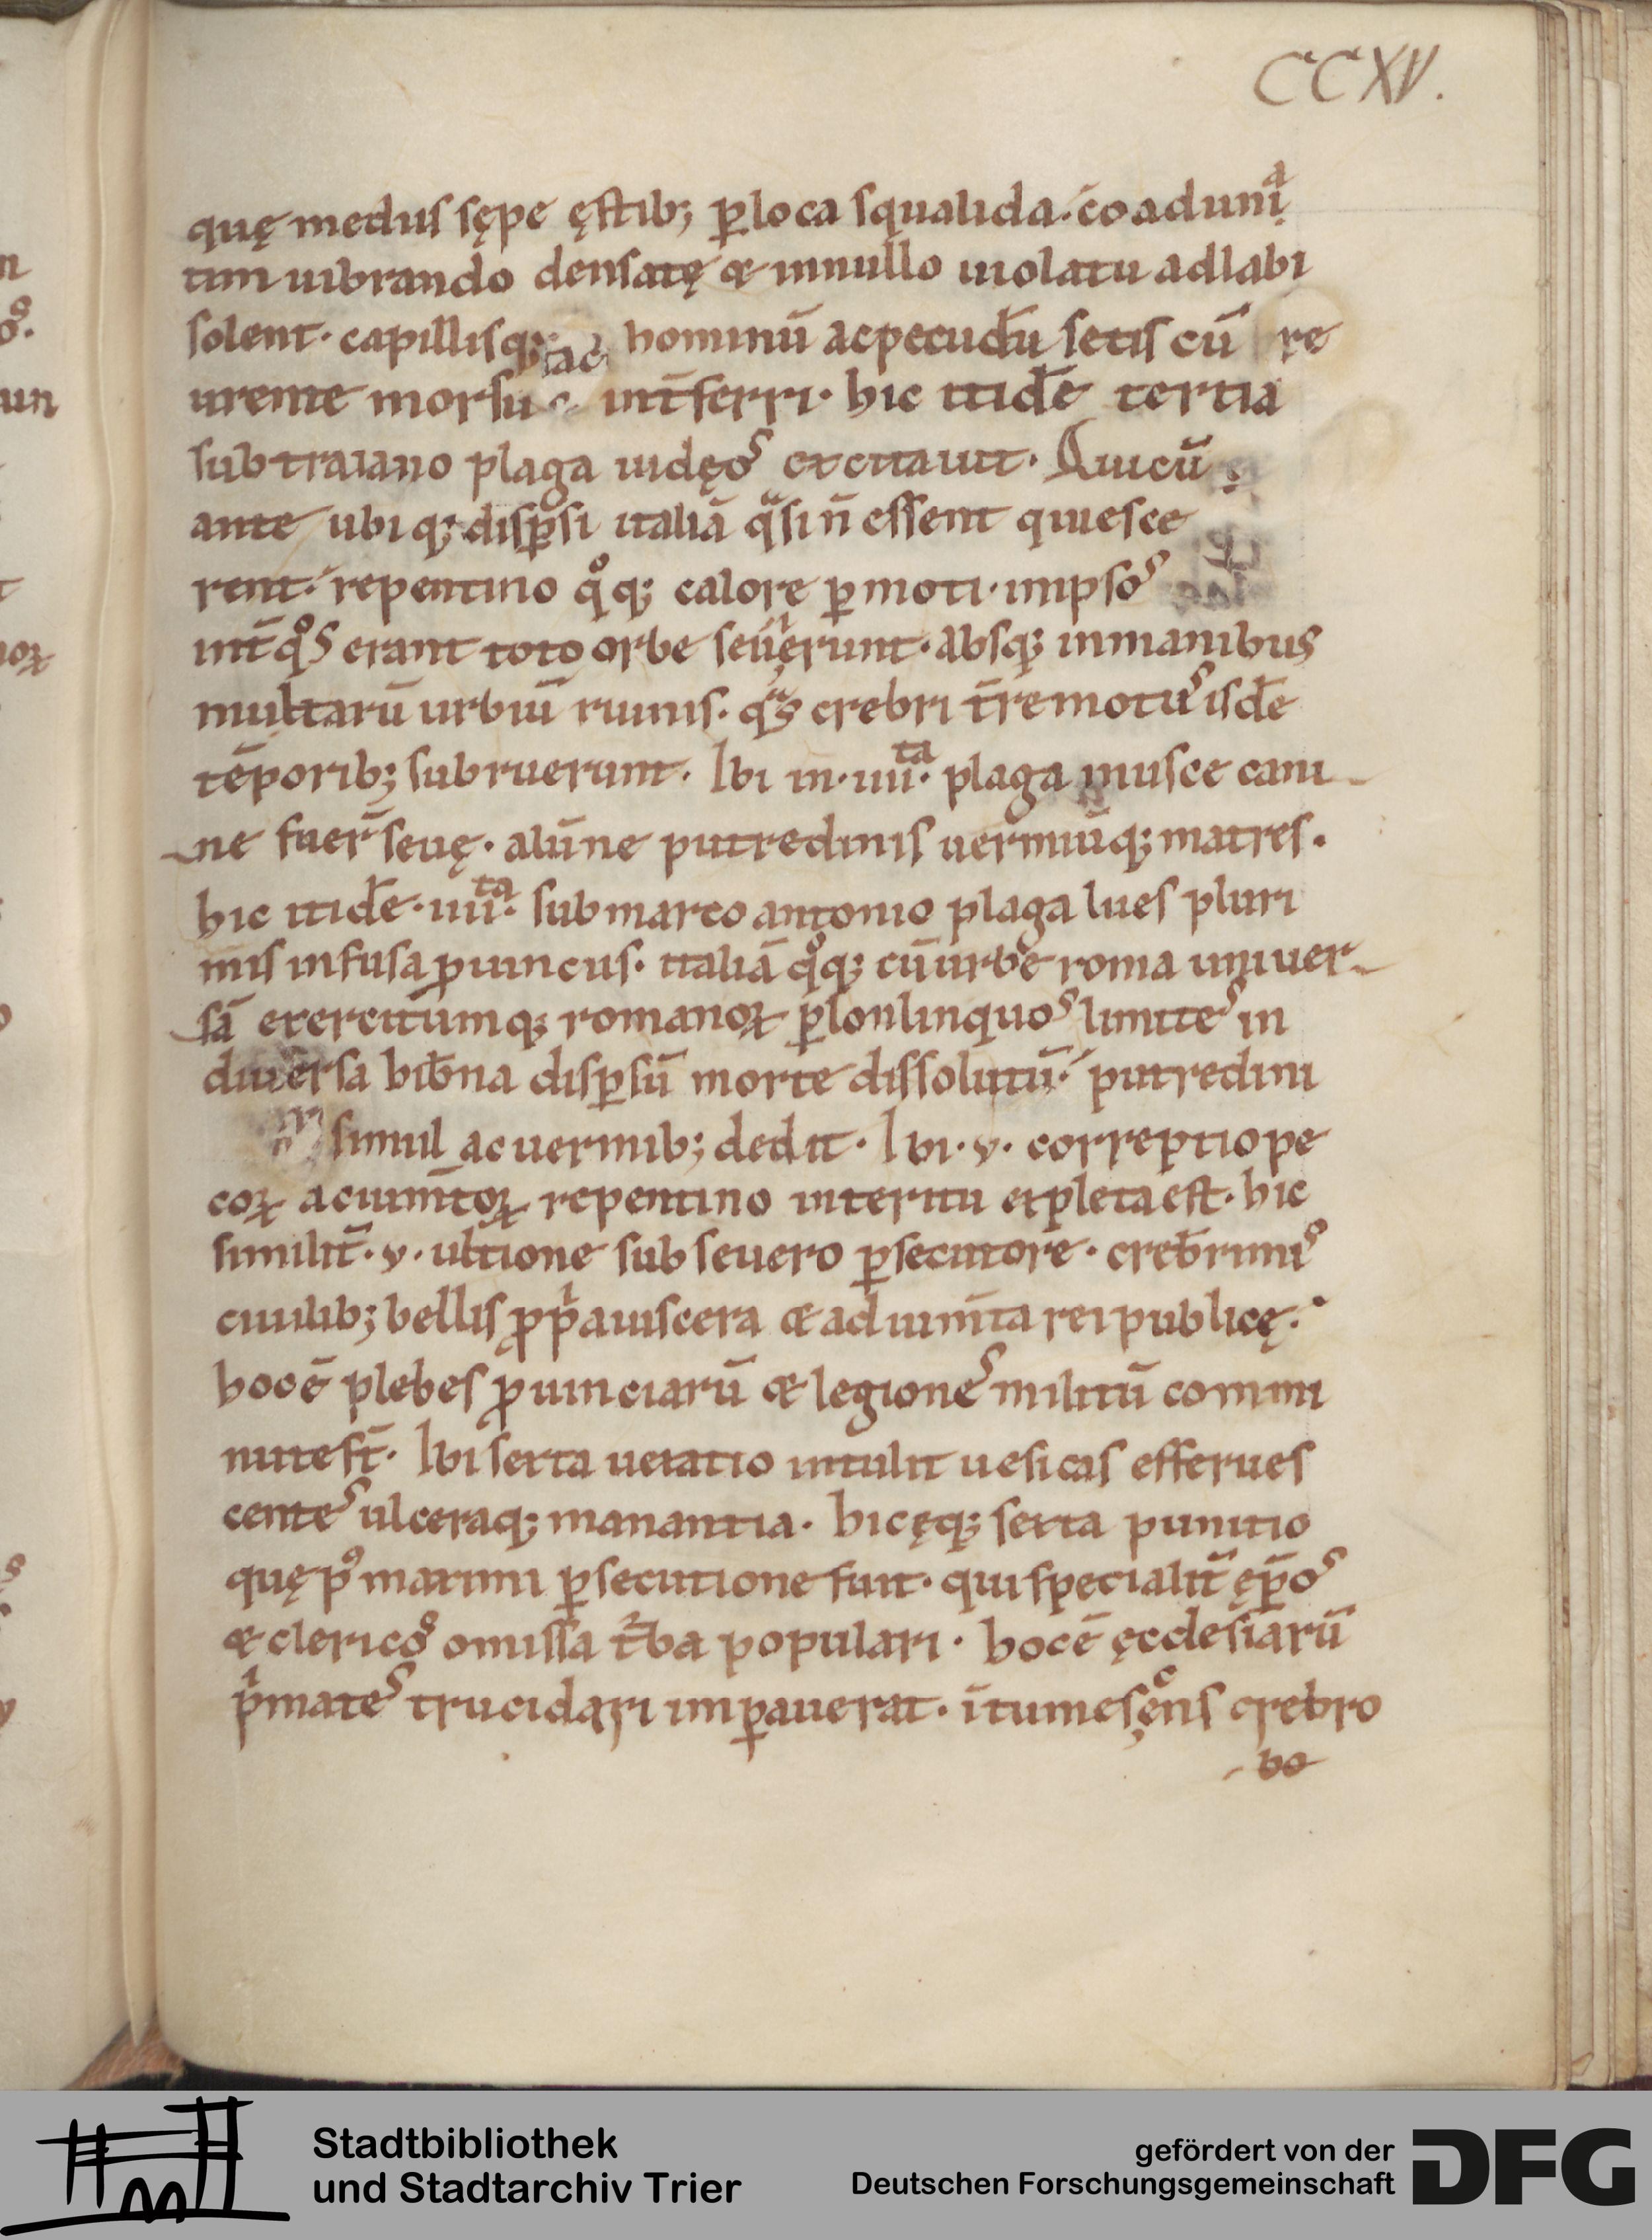 CCXV.
quę medus sępe ęstib; ꝑ loca squalida. coadunaͥ
tim uibrando densatę & innullo uiolatu adlabi
solent. capillisq; ac hominū ac pecudū setis cū re
urente morsu int̄ferri. hic itidē tertia
sub traiano plaga iudęos excitauit. Qui cū
ante ubiq; disꝑsi italiā qͣsi n̄ essent quiesce
rent. repentino qͦq; calore ꝑmoti. in ipsos
int̄ qͦs erant toto orbe seuierunt. absq; inmanibus
multarū urbiū ruinis. qͣs crebri t̄remotus isdē
tēporib; subruerunt. Ibi in .iiii.ta plaga musce cani
ne fuer̄ seuę. alūne putredinis uermiūq; matres.
hic itidē .iiii.ta sub marco antonio plaga lues pluri
mis infusa ꝓuinciis. italiā qͦq; cū urbe roma uniuer
sā exercitūmq; romanoꝝ ꝑ lonlinquos limites in
diuersa hib̄na disꝑsū morte dissolutū. putredini
simul ac uermib; dedit. Ibi .v. correptio pe
coꝝ ac iumtoꝝ repentino interitu expleta est. hic
similit̄ .v. ultione sub seuero ꝑsecutore. creb̄rimis
ciuilib; bellis ꝓpͥa uiscera & adiumta rei publicę.
hoc ē plebes ꝓuinciarū & legiones militū commi
nute st̄. Ibi sexta uexatio intulit uesicas efferues
centes ulceraq; manantia. hicęq; sexta punitio
quę pꝰ maximi ꝑsecutione fuit. qui specialit̄ ęp̄os
& clericos omissa t̾ba populari. hoc ē ęcclesiarū
pͥmates trucidari imꝑauerat. ītumescens crebro
ho
Stadtbibliothek
und Stadtarchiv Trier
gefördert von der
Deutschen Forschungsgemeinschaft
DFG